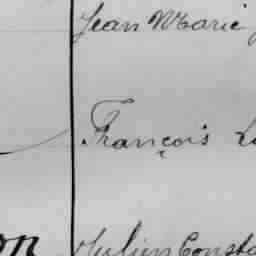 Jean Marie
François
on Julien